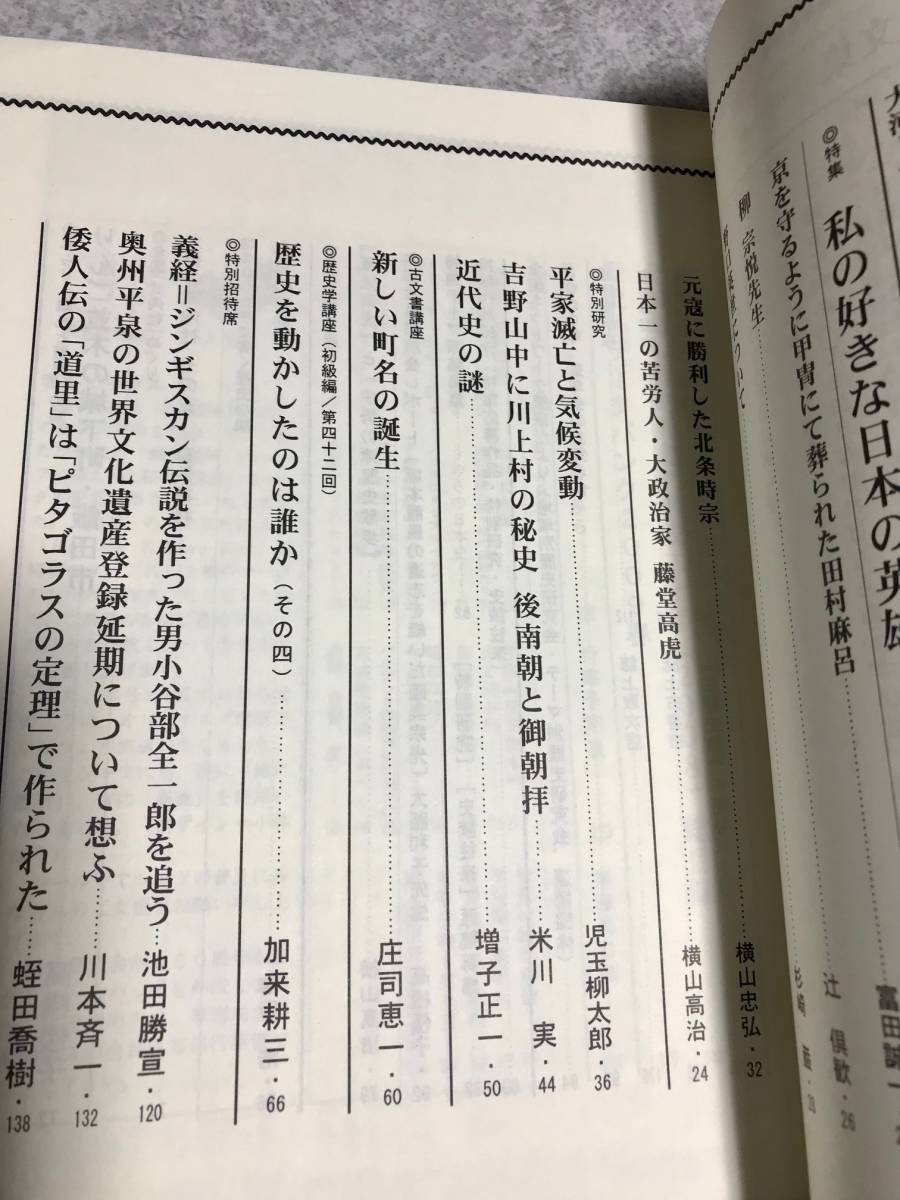 ◎特集 私の好きな日本の英雄
京を守るように甲冑にて葬られた田村麻呂………辻 倶歓・26
柳 宗悦先生
元寇に勝利した北条時宗………横山忠弘・32
日本一の苦労人・大政治家 藤堂高虎………横山高治・24
◎特別研究
平家滅亡と気候変動………児玉柳太郎・36
吉野山中に川上村の秘史 後南朝と御朝拝………米川 実・44
近代史の謎………増子正一・50
◎古文書講座
新しい町名の誕生………庄司恵一・60
◎歴史学講座（初級編／第四十二回）
歴史を動かしたのは誰か（その四）………加来耕三・66
◎特別招待席
義経＝ジンギスカン伝説を作った男小谷部全一郎を追う…池田勝宣・120
奥州平泉の世界文化遺産登録延期について想ふ………川本斉一・132
倭人伝の「道里」は「ピタゴラスの定理」で作られた……蛭田喬樹・138